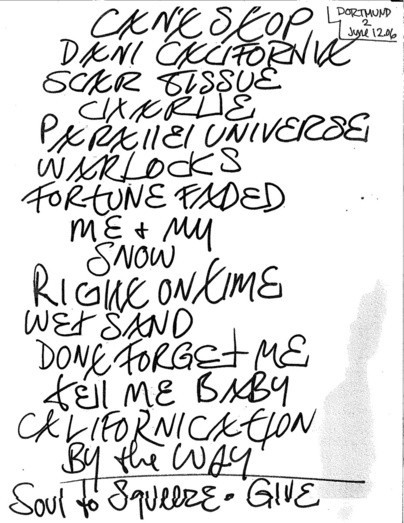 DORTMUND
2
June 12 06
CANT STOP
DANI CALIFORNIA
SCAR TISSUE
CHARLIE
PARAllEl UNIVERSE
WARLOCKS
FORTUNE FADED
ME + MY
SNOW
RIGHT ON TIME
WET SAND
DONT FORGET ME
tEll ME BABY
CALIFORNICATION
By the WAY
Soul to Squeeze • GIVE